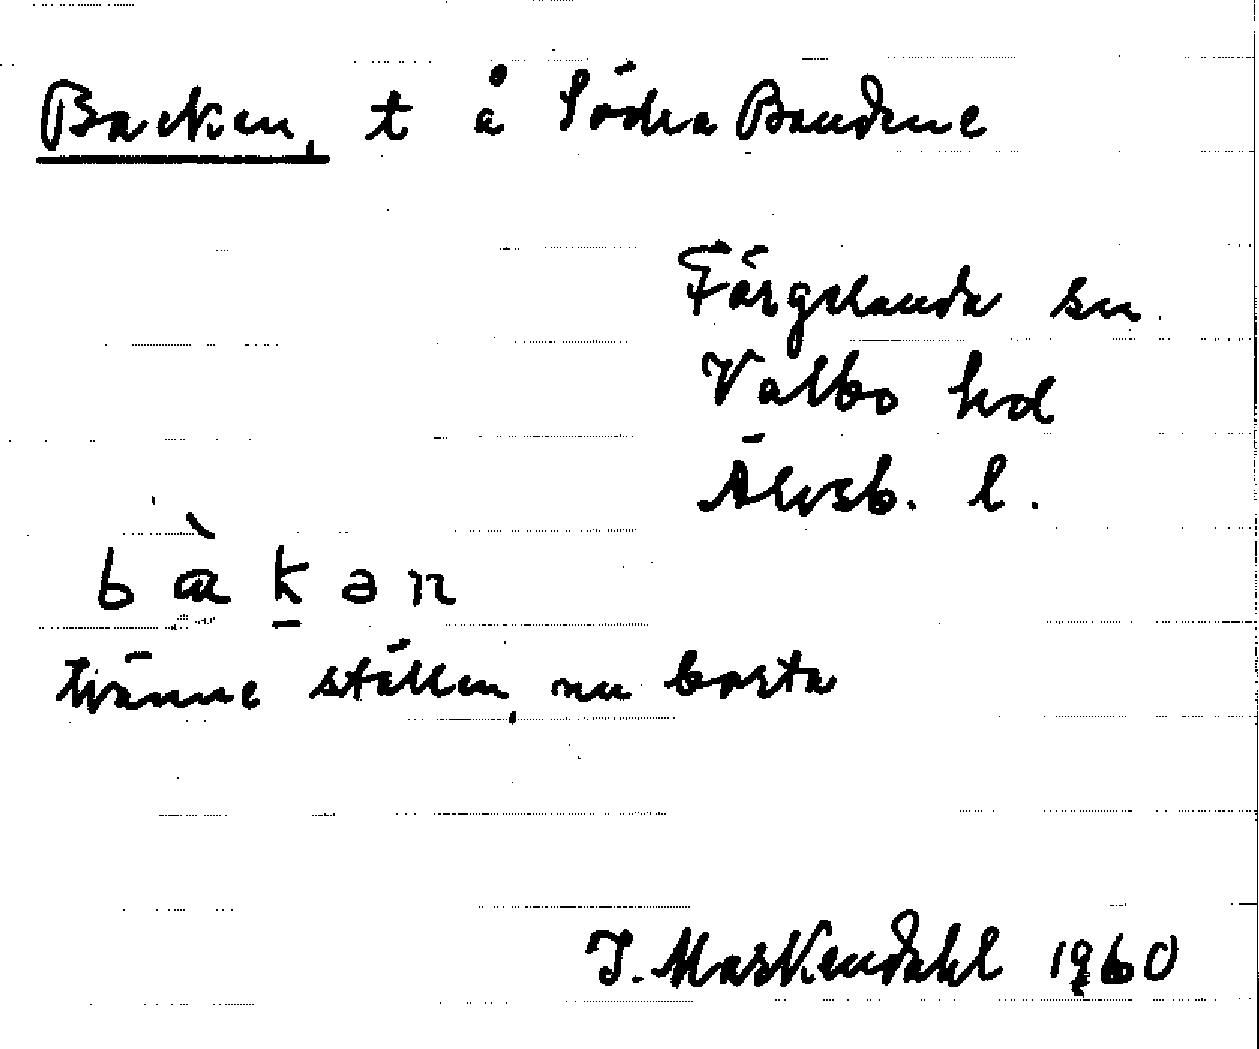 Backen, t å Södra Bandene
Färgelanda sn.
Valbo hd
Älvsb. l.
bàk̲an
tvänne ställen, nu borta
J. Markendahl 1960